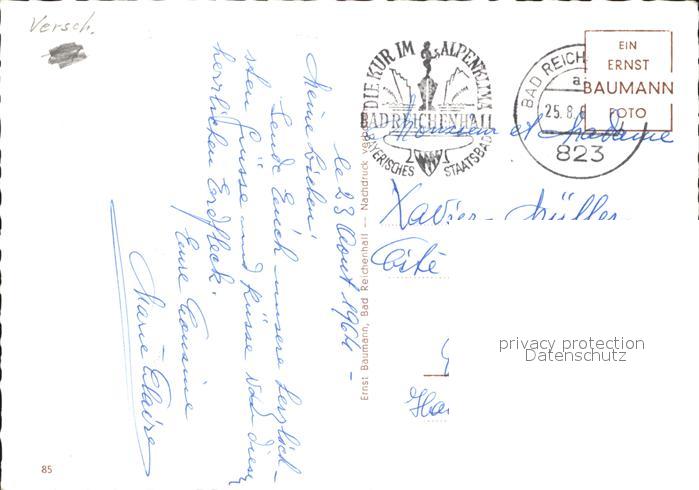 Versch.
le 23 Aout 1964 -
Meine Lieben!
Sende Euch unsere herzlich-
sten Grüsse und Küsse von diesem
herrlichen Erdfleck.
Eure Cousine
Marie Claire
DIE KUR IM ALPENKLIMA
BAD REICHENHALL
BAYERISCHES STAATSBAD
BAD REICH
a
25.8.6
823
EIN
ERNST
BAUMANN
FOTO
Monsieur et Madame
Xavier- Müller
Cité
Ha
Ernst Baumann, Bad Reichenhall — Nachdruck verboten
privacy protection
Datenschutz
85